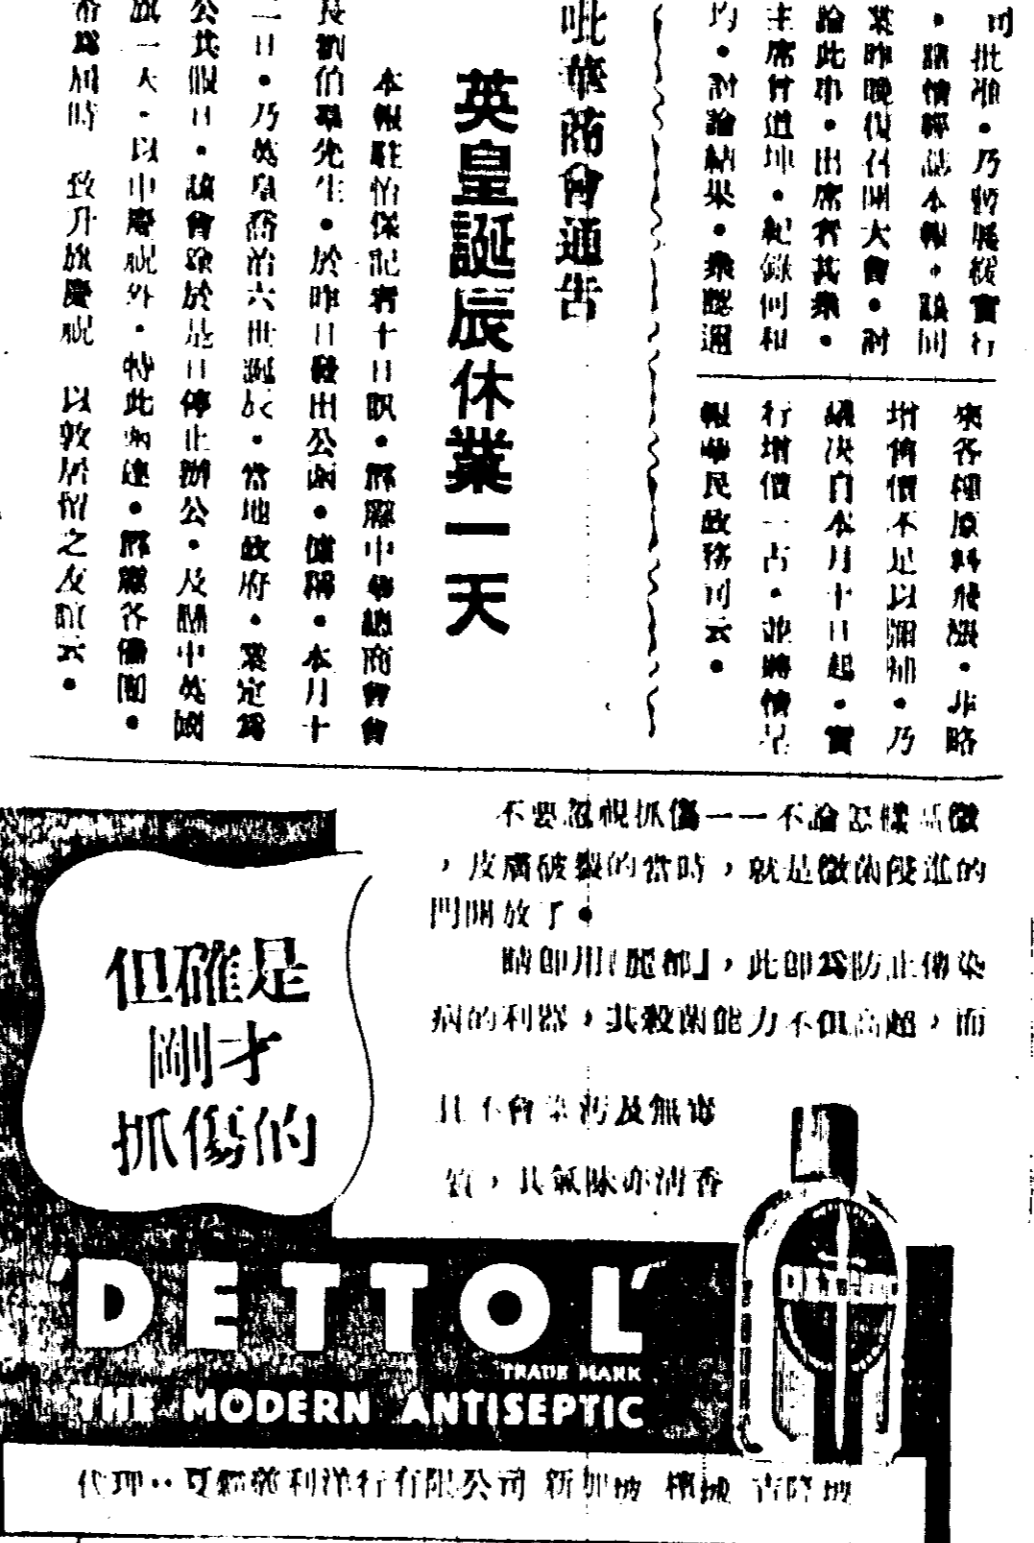 司批准・乃暫展緩實行
・詳情經誌本報・該同
業昨晚復召開大會・討
論此事・出席者甚衆・
主席曾道坤・紀錄何和
均・討論結果・衆認週
來各種原料飛漲・非略
增售價不足以彌補・乃
議决自本月十日起・實
行增價一占・並將情呈
報華民政務司云・
吡華商會通告
英皇誕辰休業一天
本報駐怡保記者十日訊・霹靂中華總商會會
長劉伯羣先生・於昨日發出公函・儘稱・本月十
二日・乃英皇喬治六世誕辰・當地政府・業定爲
公共假日・該會除於是日停止辦公・及懸中英國
旗一天・以申慶祝外・特此函達・霹靂各僑團・
希爲屆時 致升旗慶祝 以敦居留之友誼云・
不要忽視抓傷——不論怎樣
，皮膚破裂的當時，就是微菌侵進的
門開放了・
請卽用「麗都」，此卽爲防止傳染
病的利器，其殺菌能力不但高超，而
且不會染汚及無毒
質，其氣味亦清香
但確是
剛才
抓傷的
'DETTOL'
TRADE MARK
THE MODERN ANTISEPTIC
DETTOL
代理‥夏 利洋行有限公司 新加坡 檳城 吉隆坡